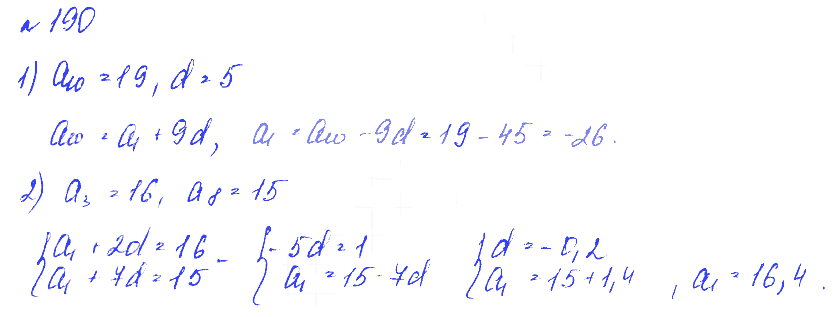 № 190
1) a₁₀ = 19, d = 5
a₁₀ = a₁ + 9d, a₁ = a₁₀ - 9d = 19 - 45 = -26.
2) a₃ = 16, a₈ = 15
{a₁ + 2d = 16 - {-5d = 1 {d = -0,2
{a₁ + 7d = 15 {a₁ = 15 - 7d {a₁ = 15 + 1,4 , a₁ = 16,4.